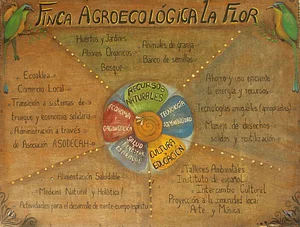 FINCA AGROECOLÓGICA LA FLOR
Huertos y Jardines
Abonos Organicos
Bosque
Animales de granja
Banco de semillas
Ecoaldea
Comercio Local
Transición a sistemas de
trueque y economía solidaria
Administración a través
de Asociación ASODECAH
Ahorro y uso eficiente
de energía y recursos
Tecnologías amigables (apropiadas)
Manejo de desechos
solidos y reutilización
RECURSOS
NATURALES
ECONOMIA
Y
ORGANIZACIÓN
TECNOLOGÍA
Y
SALUD
CULTURA
EDUCACIÓN
Alimentación Saludable
Medicina Natural y Holística
Actividades para el desarrollo de mente-cuerpo-espíritu
Talleres Ambientales
Instituto de español
Intercambio Cultural
Proyección a la comunidad local
Arte y Música